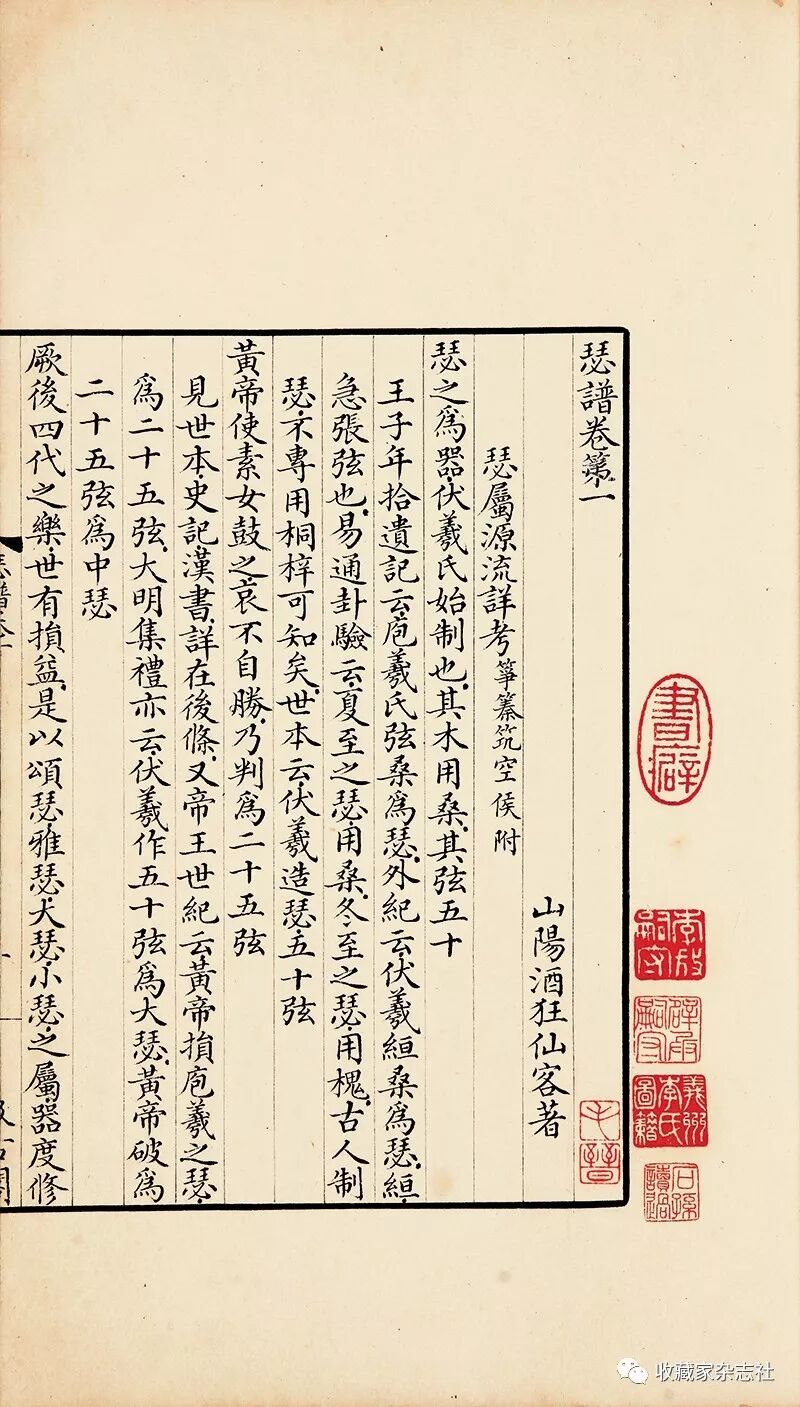 瑟譜卷第一
山陽酒狂仙客著
瑟屬源流詳考箏䉡筑空侯附
瑟之爲器伏羲氏始制也其木用桑其弦五十
王子年拾遺記云庖羲氏弦桑爲瑟外紀云伏羲絙桑爲瑟絙
急張弦也易通卦驗云夏至之瑟用桑冬至之瑟用槐古人制
瑟不專用桐梓可知矣世本云伏羲造瑟五十弦
黃帝使素女鼓之哀不自勝乃判爲二十五弦
見世本史記漢書詳在後條又帝王世紀云黃帝損庖羲之瑟
爲二十五弦大明集禮亦云伏羲作五十弦爲大瑟黃帝破爲
二十五弦爲中瑟
厥後四代之樂世有損益是以頌瑟雅瑟大瑟小瑟之屬器度修
書癖
義州李氏圖籍
毛晉
收藏家杂志社